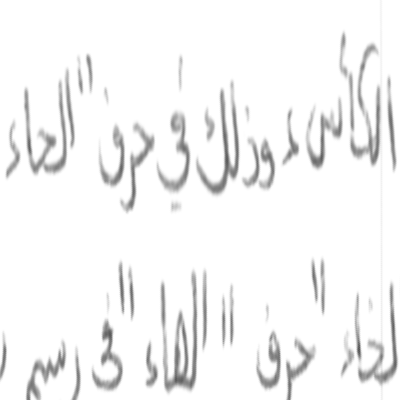 الكأس ء وذلك في حرف "الحاء
لخاء" حرف "الهاء" في رسم